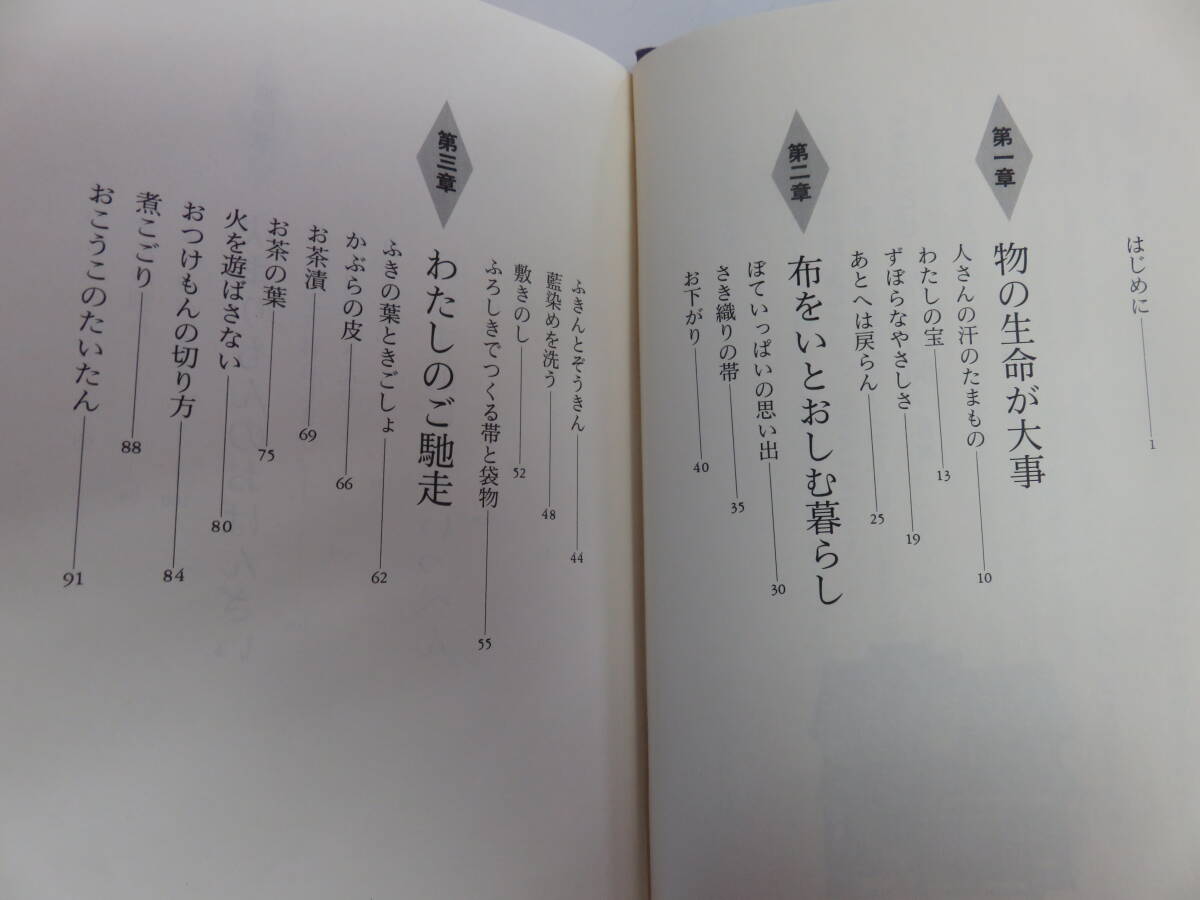 はじめに 1
第一章 物の生命が大事
人さんの汗のたまもの 10
わたしの宝 13
ずぼらなやさしさ 19
あとへは戻らん 25
第二章 布をいとおしむ暮らし
ぼていっぱいの思い出 30
さき織りの帯 35
お下がり 40
ふきんとぞうきん 44
藍染めを洗う 48
敷きのし 52
ふろしきでつくる帯と袋物 55
第三章 わたしのご馳走
ふきの葉ときごしょ 62
かぶらの皮 66
お茶漬 69
お茶の葉 75
火を遊ばさない 80
おつけもんの切り方 84
煮こごり 88
おこうこのたいたん 91